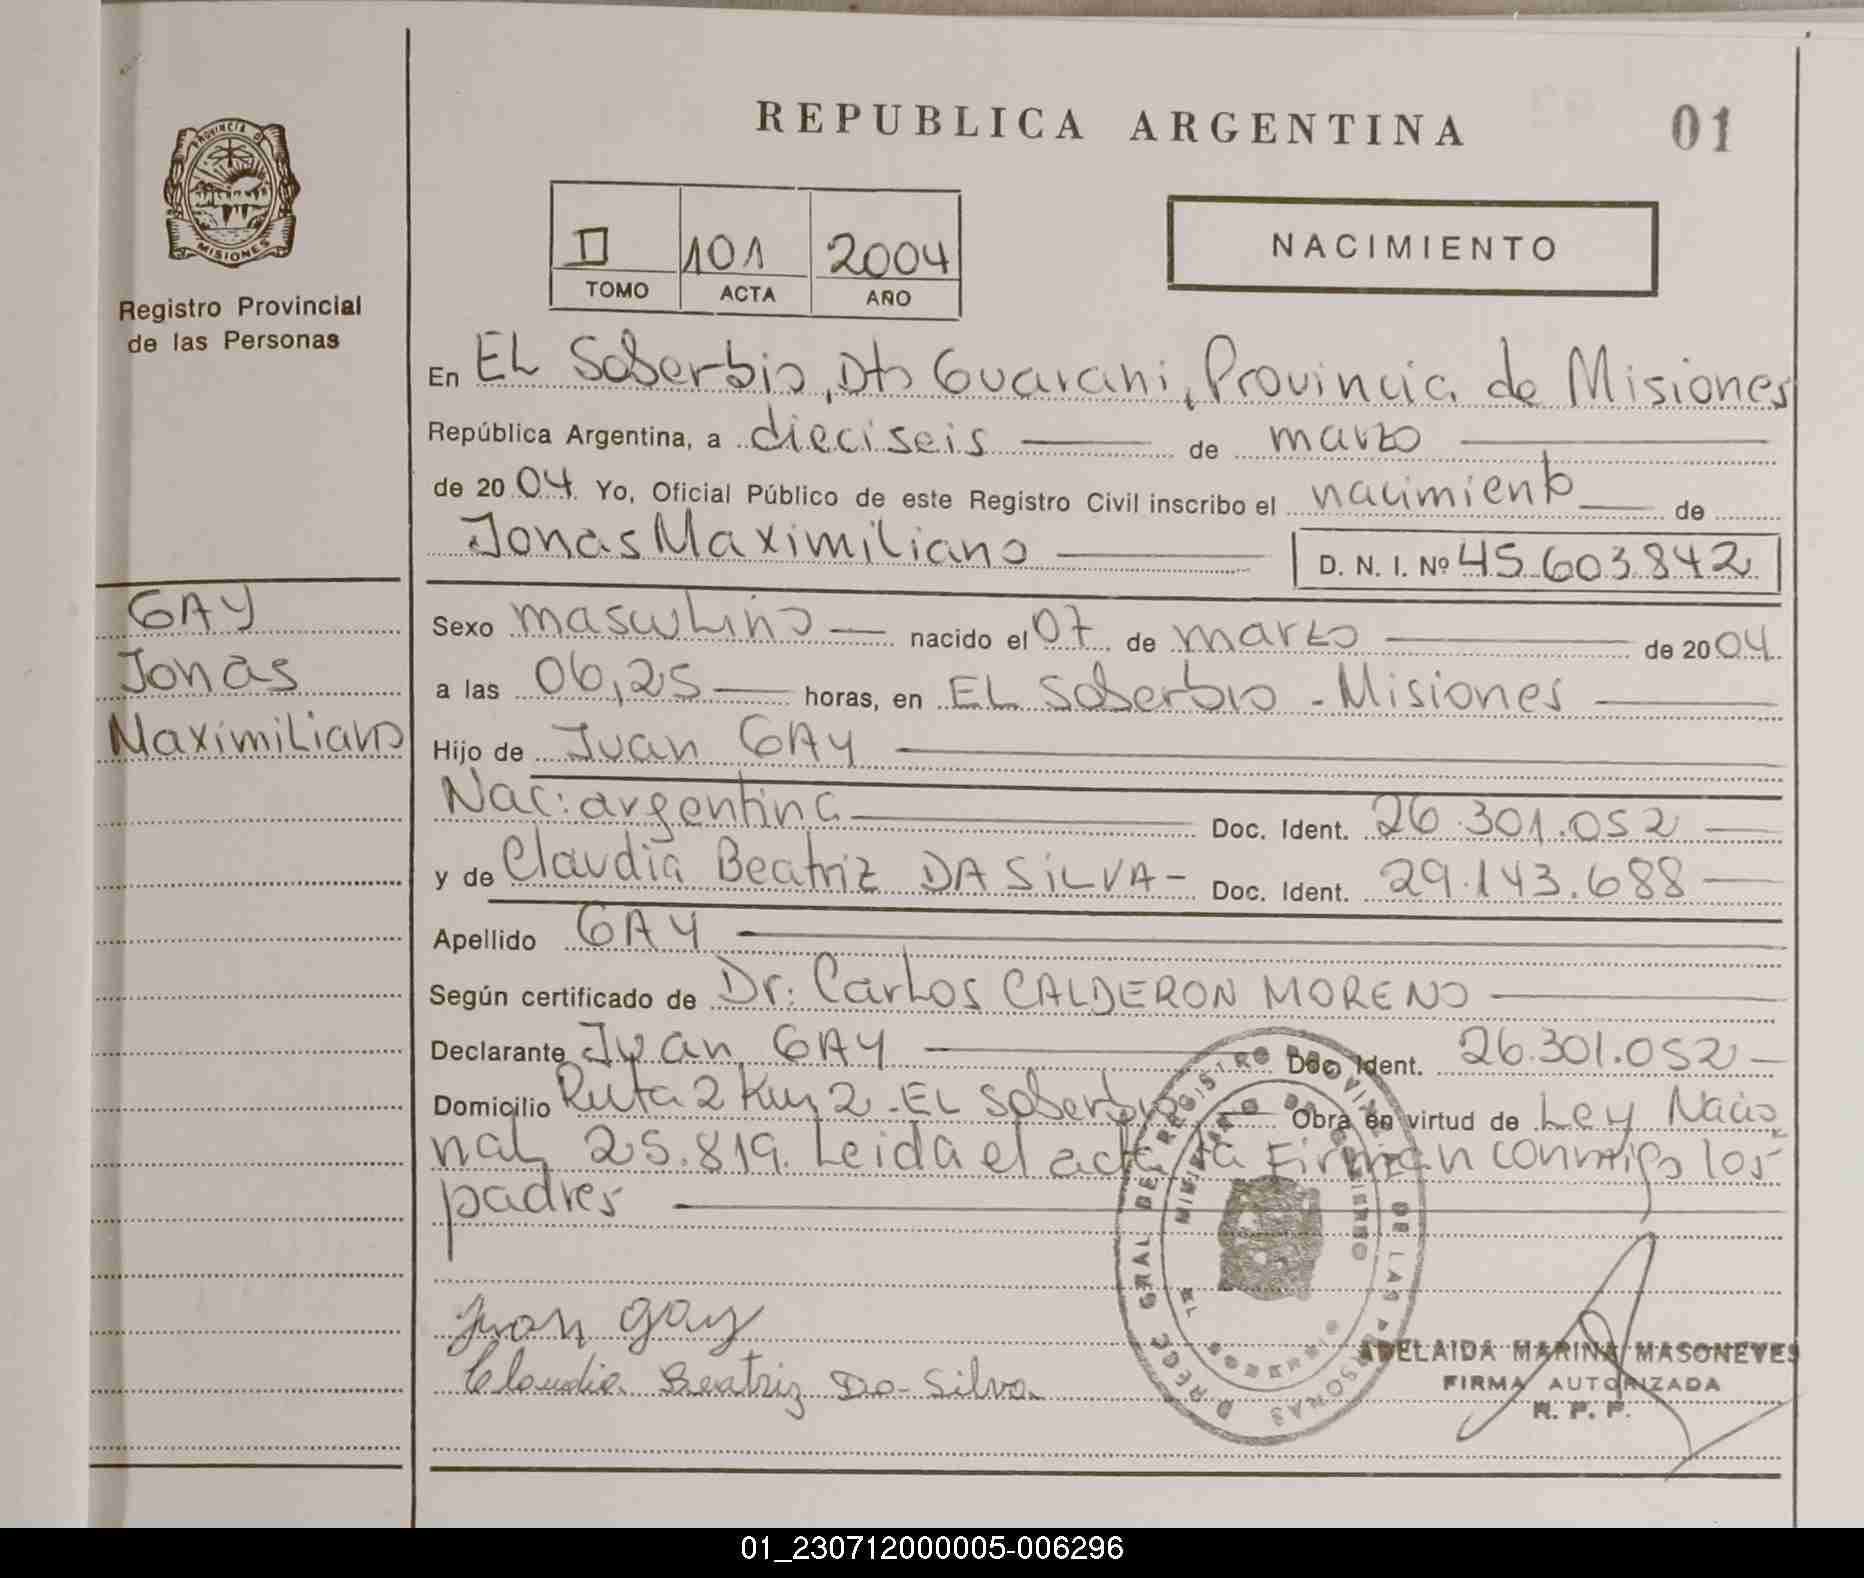 REPUBLICA ARGENTINA
01
PROVINCIA D
MISIONES
Registro Provincial
de las Personas
II 101 2004
TOMO ACTA AÑO
NACIMIENTO
En EL Soberbio, Dto Guarani, Provincia de Misiones
República Argentina, a dieciseis de marzo
de 2004 Yo, Oficial Público de este Registro Civil inscribo el nacimiento de
Jonas Maximiliano D. N. I. Nº 45.603.842
GAY
Jonas
Maximiliano
Sexo masculino nacido el 07 de marzo de 2004
a las 06,25 horas, en EL Soberbio - Misiones
Hijo de Juan GAY
Nac: argentina Doc. Ident. 26.301.052
y de Claudia Beatriz DA SILVA - Doc. Ident. 29.143.688
Apellido GAY
Según certificado de Dr. Carlos CALDERON MORENO
Declarante Juan GAY Doc Ident. 26.301.052
Domicilio Ruta 2 Km 2 - EL Soberbio Obra en virtud de Ley Nacio
nal 25.819. Leida el acta la Firman conmigo los
padres
Juan gay
Claudia Beatriz Da Silva
ADELAIDA MARINA MASONEVES
FIRMA AUTORIZADA
R. P. P.
01_230712000005-006296